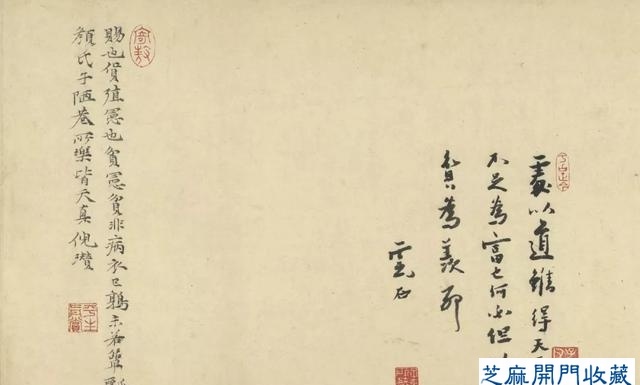 處以道雖得天
不足為富也何但
貧為羨耶
雲石
賜也貨殖憲也貧憲貧非病衣已鶉未若簞
顏氏子陋巷所樂皆天真倪瓚
芝麻開門收藏